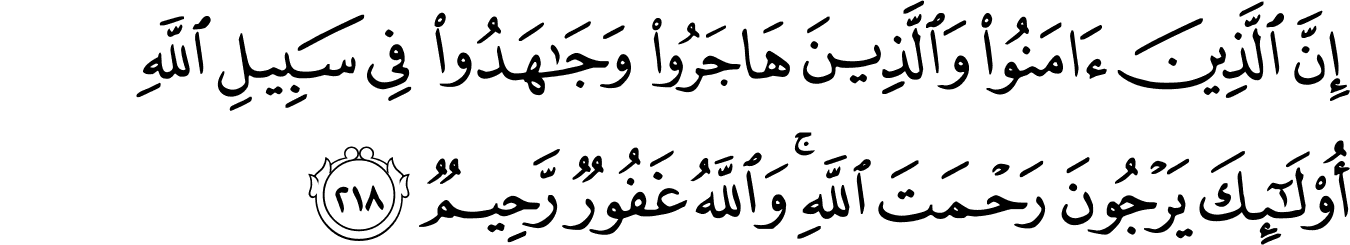 إِنَّ ٱلَّذِينَ ءَامَنُوا۟ وَٱلَّذِينَ هَاجَرُوا۟ وَجَـٰهَدُوا۟ فِى سَبِيلِ ٱللَّهِ
أُو۟لَـٰٓئِكَ يَرْجُونَ رَحْمَتَ ٱللَّهِ ۚ وَٱللَّهُ غَفُورٌ رَّحِيمٌ ٢١٨